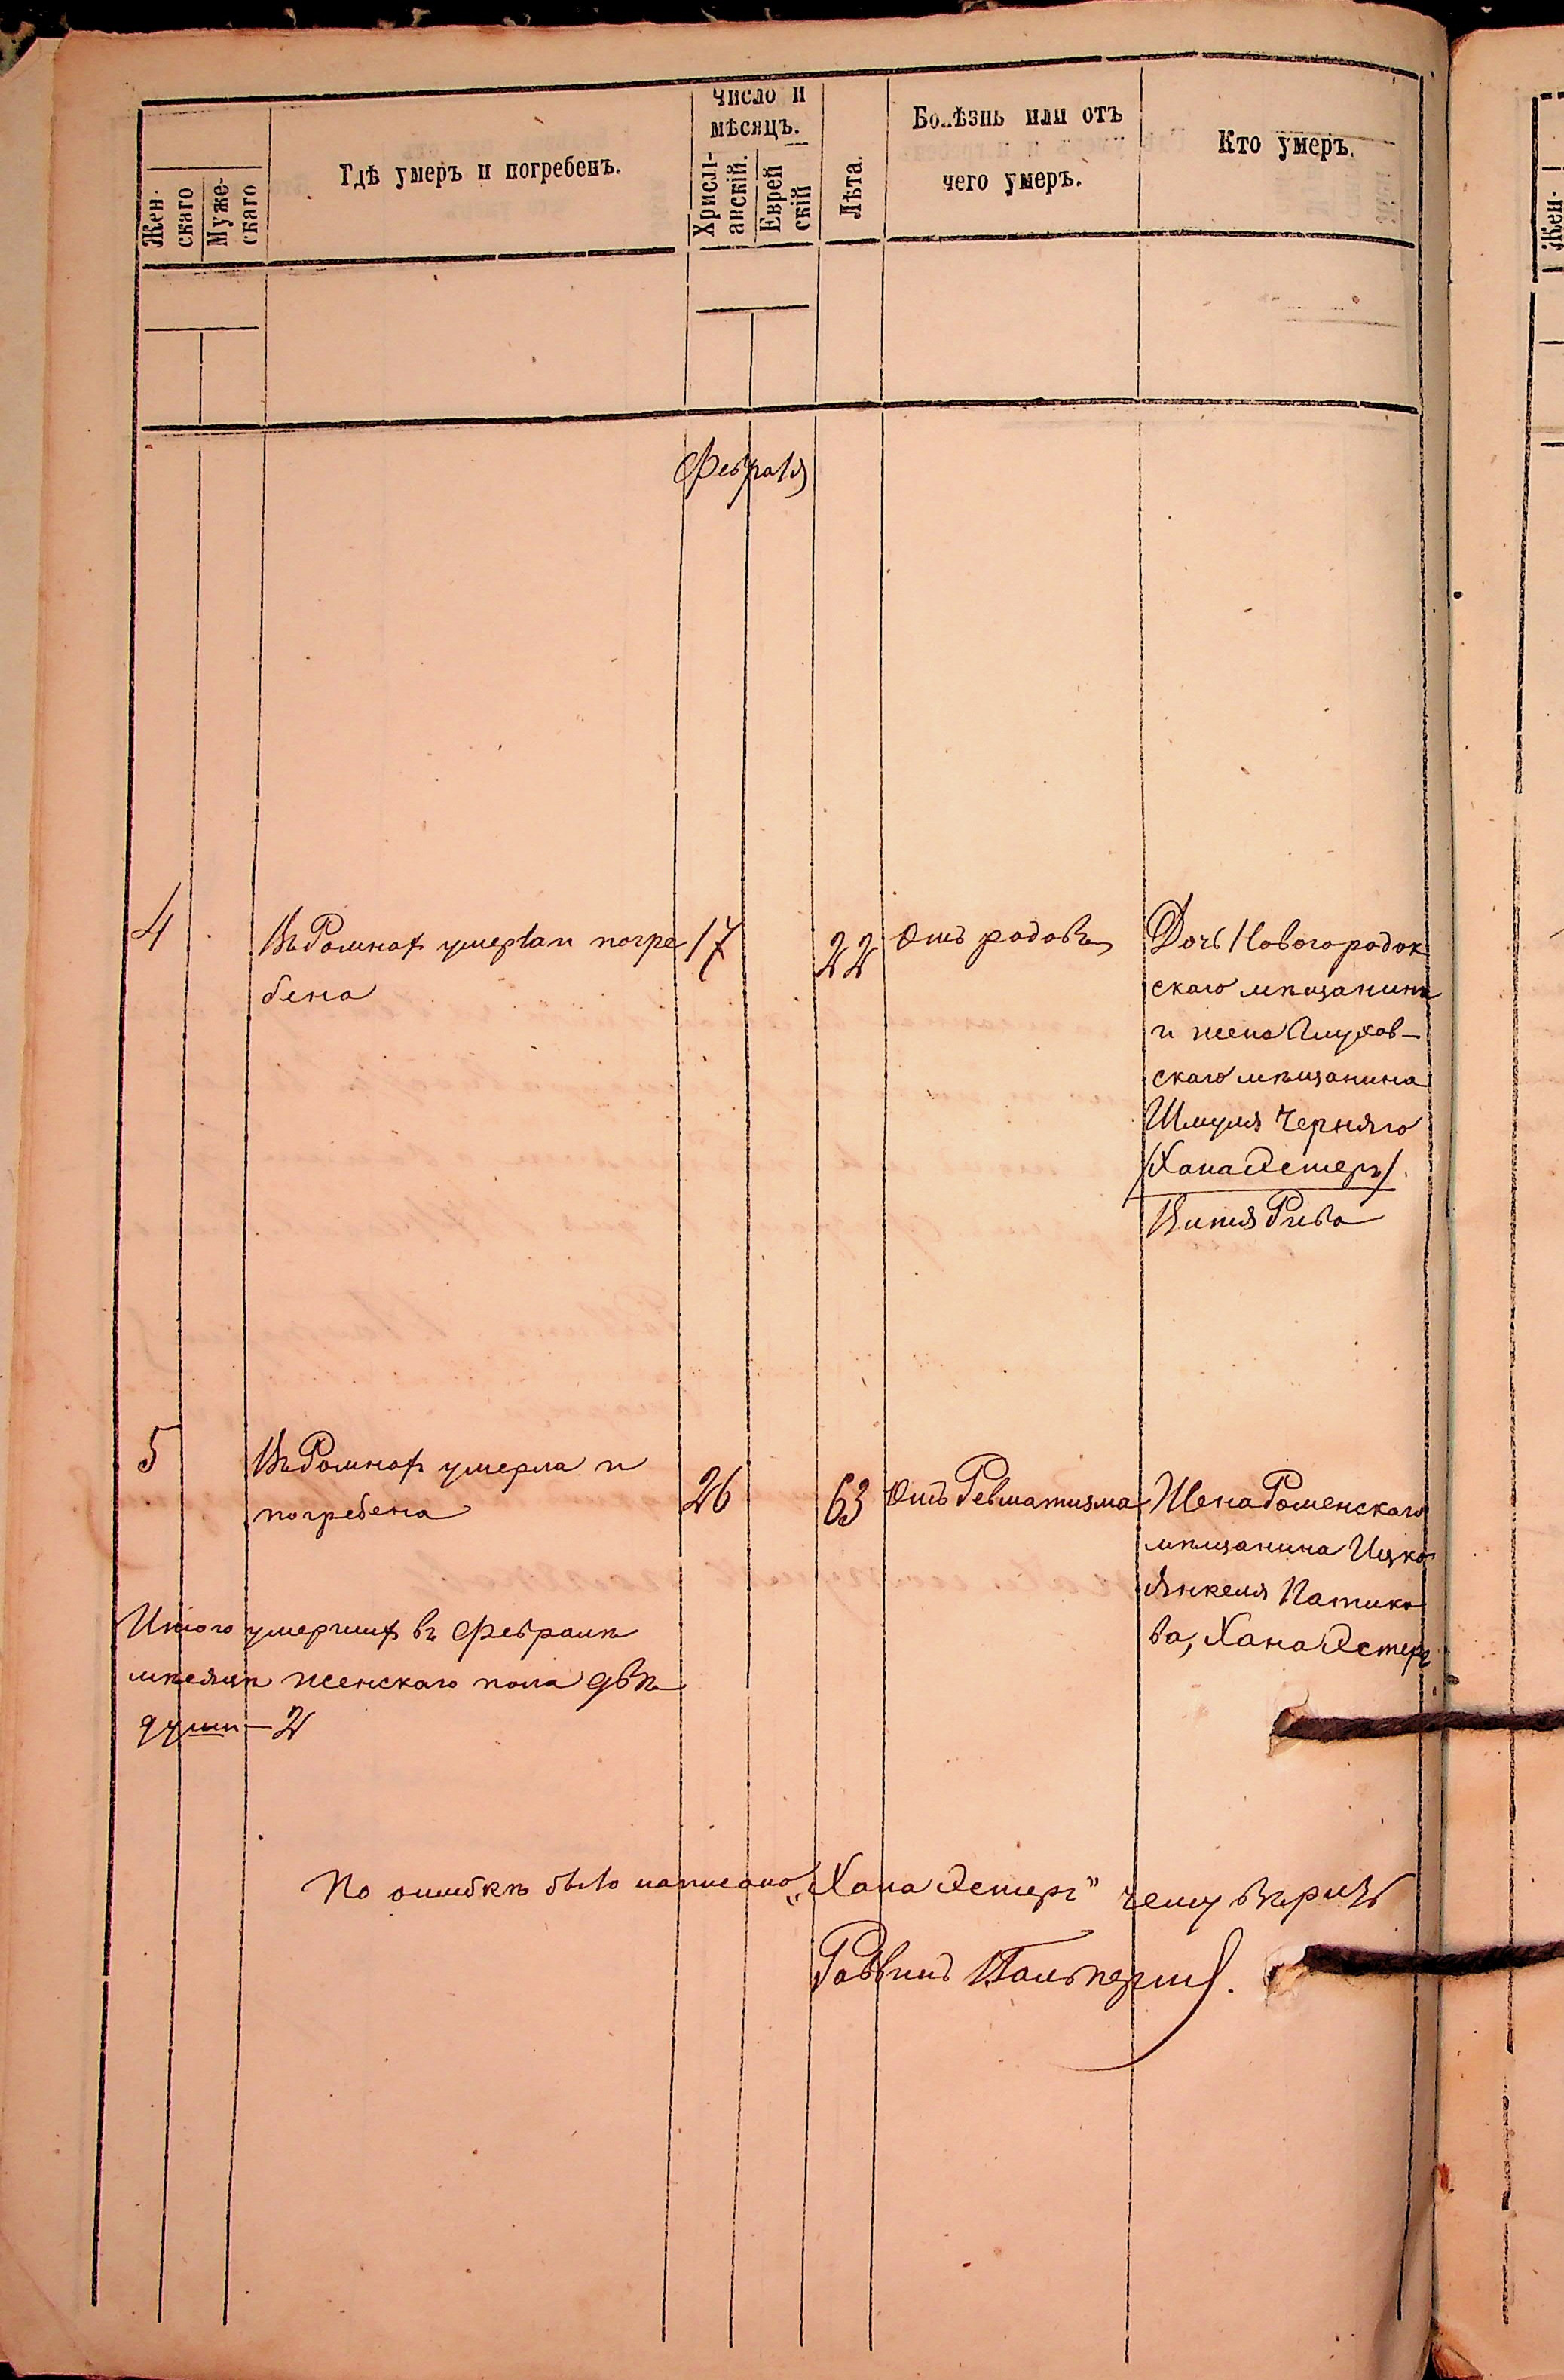 Жен-
скаго
Муже-
скаго
Гдѣ умеръ и погребенъ.
Число и
мѣсяцъ.
Христі-
анскій.
Еврей
скій
Лѣта.
Болѣзнь или отъ
чего умеръ.
Кто умеръ.
Февраля
4
Въ Ромнах умерла и погре
бена
17
22
Отъ родовъ
Дочь Новогородок
скаго мѣщанина
и жена Глухов-
скаго мѣщанина
Шмуля Черняго
/Хана Эстеръ/
Витя Рива
5
Въ Ромнах умерла и
погребена
26
63
Отъ Ревматизма
Жена Роменскаго
мѣщанина Ицко
Янкеля
ва, Хана Эстеръ
Итого умерших въ Февралѣ
мѣсяцѣ женскаго пола двѣ
души – 2
По ошибкѣ было написано „Хана Эстеръ" чему вѣрить
Раввинъ Гальперинъ.
Жен-